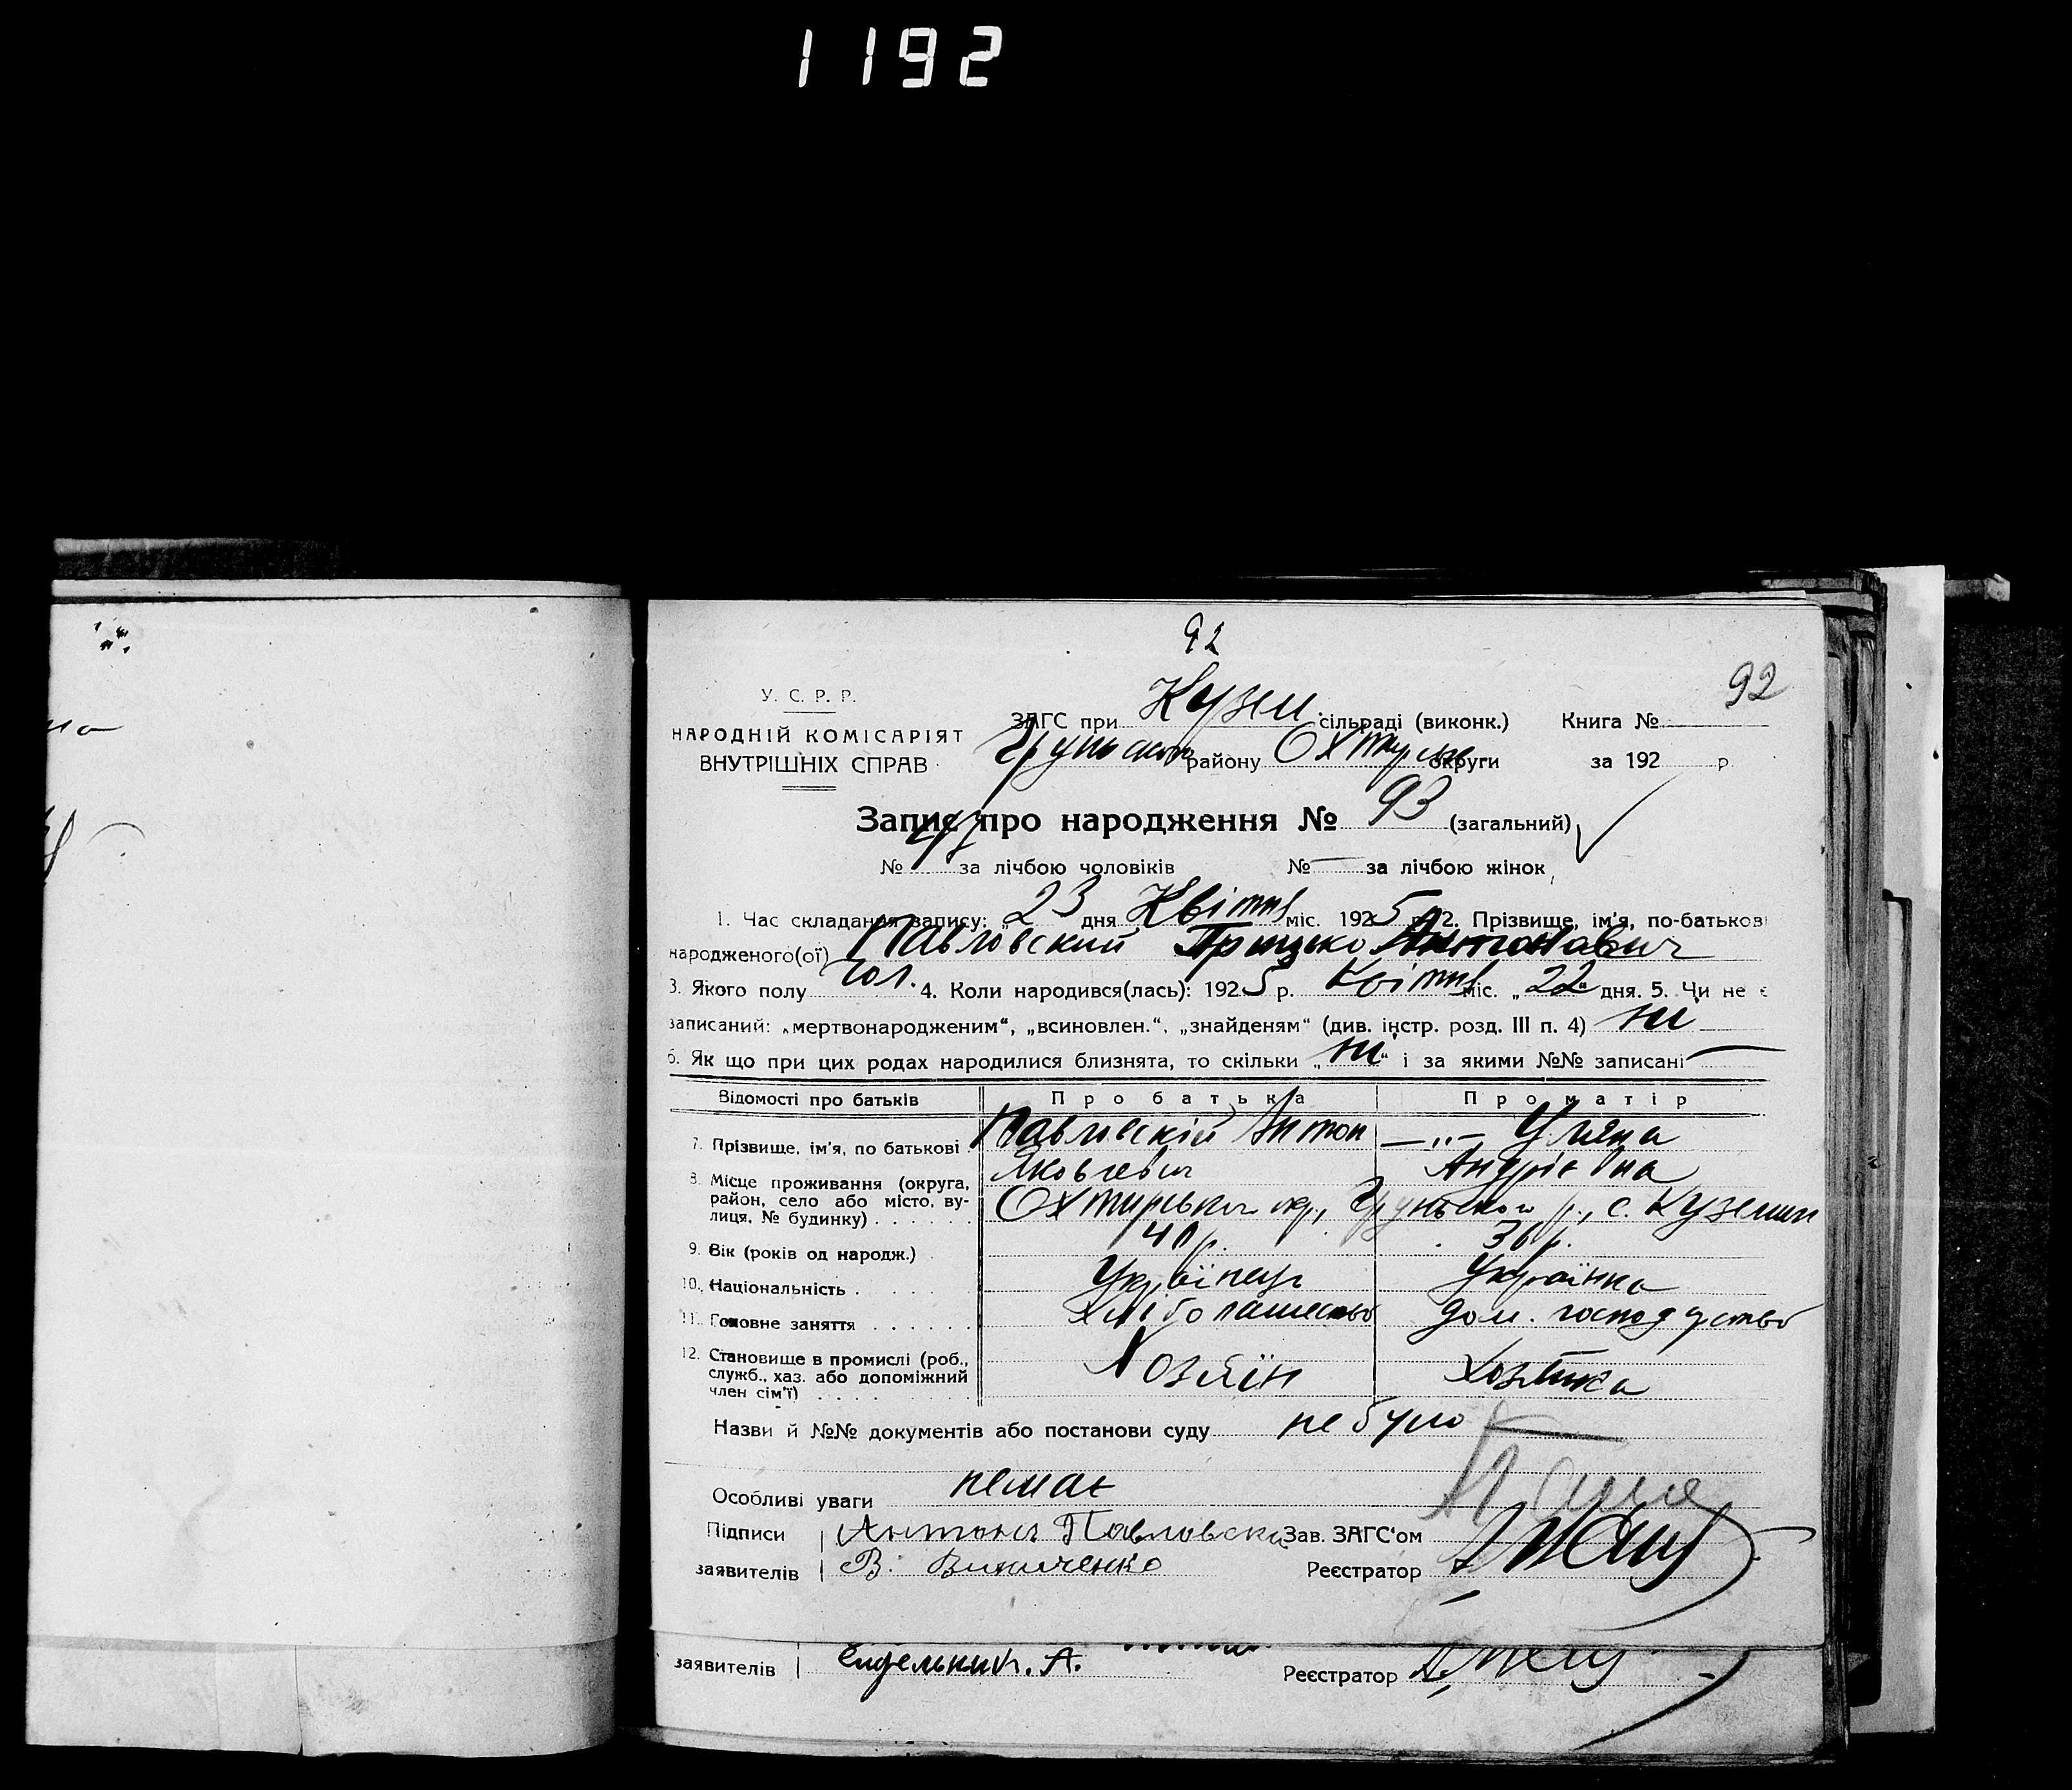 1192
92
92
У. С. Р. Р.
НАРОДНІЙ КОМІСАРІЯТ
ВНУТРІШНІХ СПРАВ
ЗАГС при Кузем. сільраді (виконк.) Книга №
Грунського району Охтирськ округи за 192 р.
Запис про народження № 93 (загальний)
№ 47 за лічбою чоловіків № — за лічбою жінок
1. Час складання запису: „23 дня Квітня міс. 1925 р. 2. Прізвище, ім'я, по-батькові
народженого(ої) Павловский Грицько Антонович
3. Якого полу чол. 4. Коли народився(лась): 1925 р. Квітня міс. „22 дня. 5. Чи не є
записаний: „мертвонародженим“, „всиновлен.“, „знайденям“ (див. інстр. розд. III п. 4) ні
6. Як що при цих родах народилися близнята, то скільки „ні“ і за якими №№ записані —
Відомості про батьків Про батька Про матір
7. Прізвище, ім'я, по батькові Павловскій Антон —„— Уляна
Яковлевич Андріївна
8. Місце проживання (округа, район, село або місто, вулиця, № будинку) Охтирської окр., Грунського р., с. Куземин
9. Вік (років од народж.) 40 р. 36 р.
10. Національність Українець Українка
11. Головне заняття Хлібопашество Дом. господарство
12. Становище в промислі (роб., служб., хаз. або допоміжний член сім'ї) Хозяїн Хозяйка
Назви й №№ документів або постанови суду не було
Особливі уваги немає
Підписи Антонъ Павловски Зав. ЗАГС'ом
заявителів В. Винниченко Реєстратор
заявителів А. Реєстратор